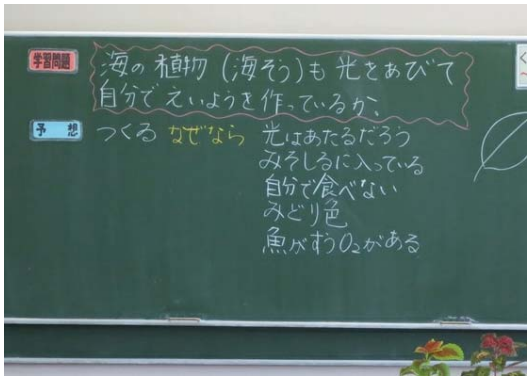 学習問題
海の植物(海そう)も光をあびて
自分でえいようを作っているか、
予想 つくる なぜなら 光はあたるだろう
みそしるに入っている
自分で食べない
みどり色
魚がすうO₂がある